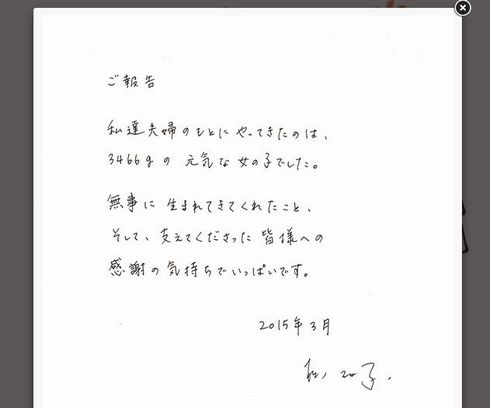 ご報告
私達夫婦のもとにやってきたのは、
3466gの 元気な女の子でした。
無事に 生まれてきてくれたこと、
そして、支えてくださった 皆様への
感謝の気持ちでいっぱいです。
2015年3月